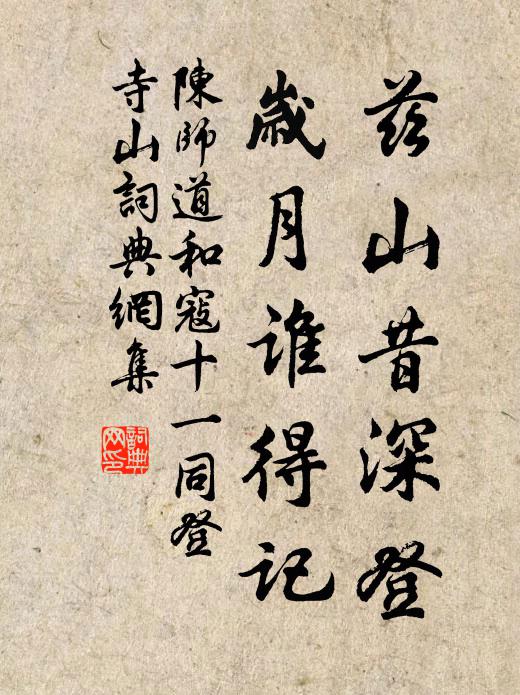 茲山昔深登
歲月誰得記
陳師道和寇十一同登
寺山詞典網集
詞典网印